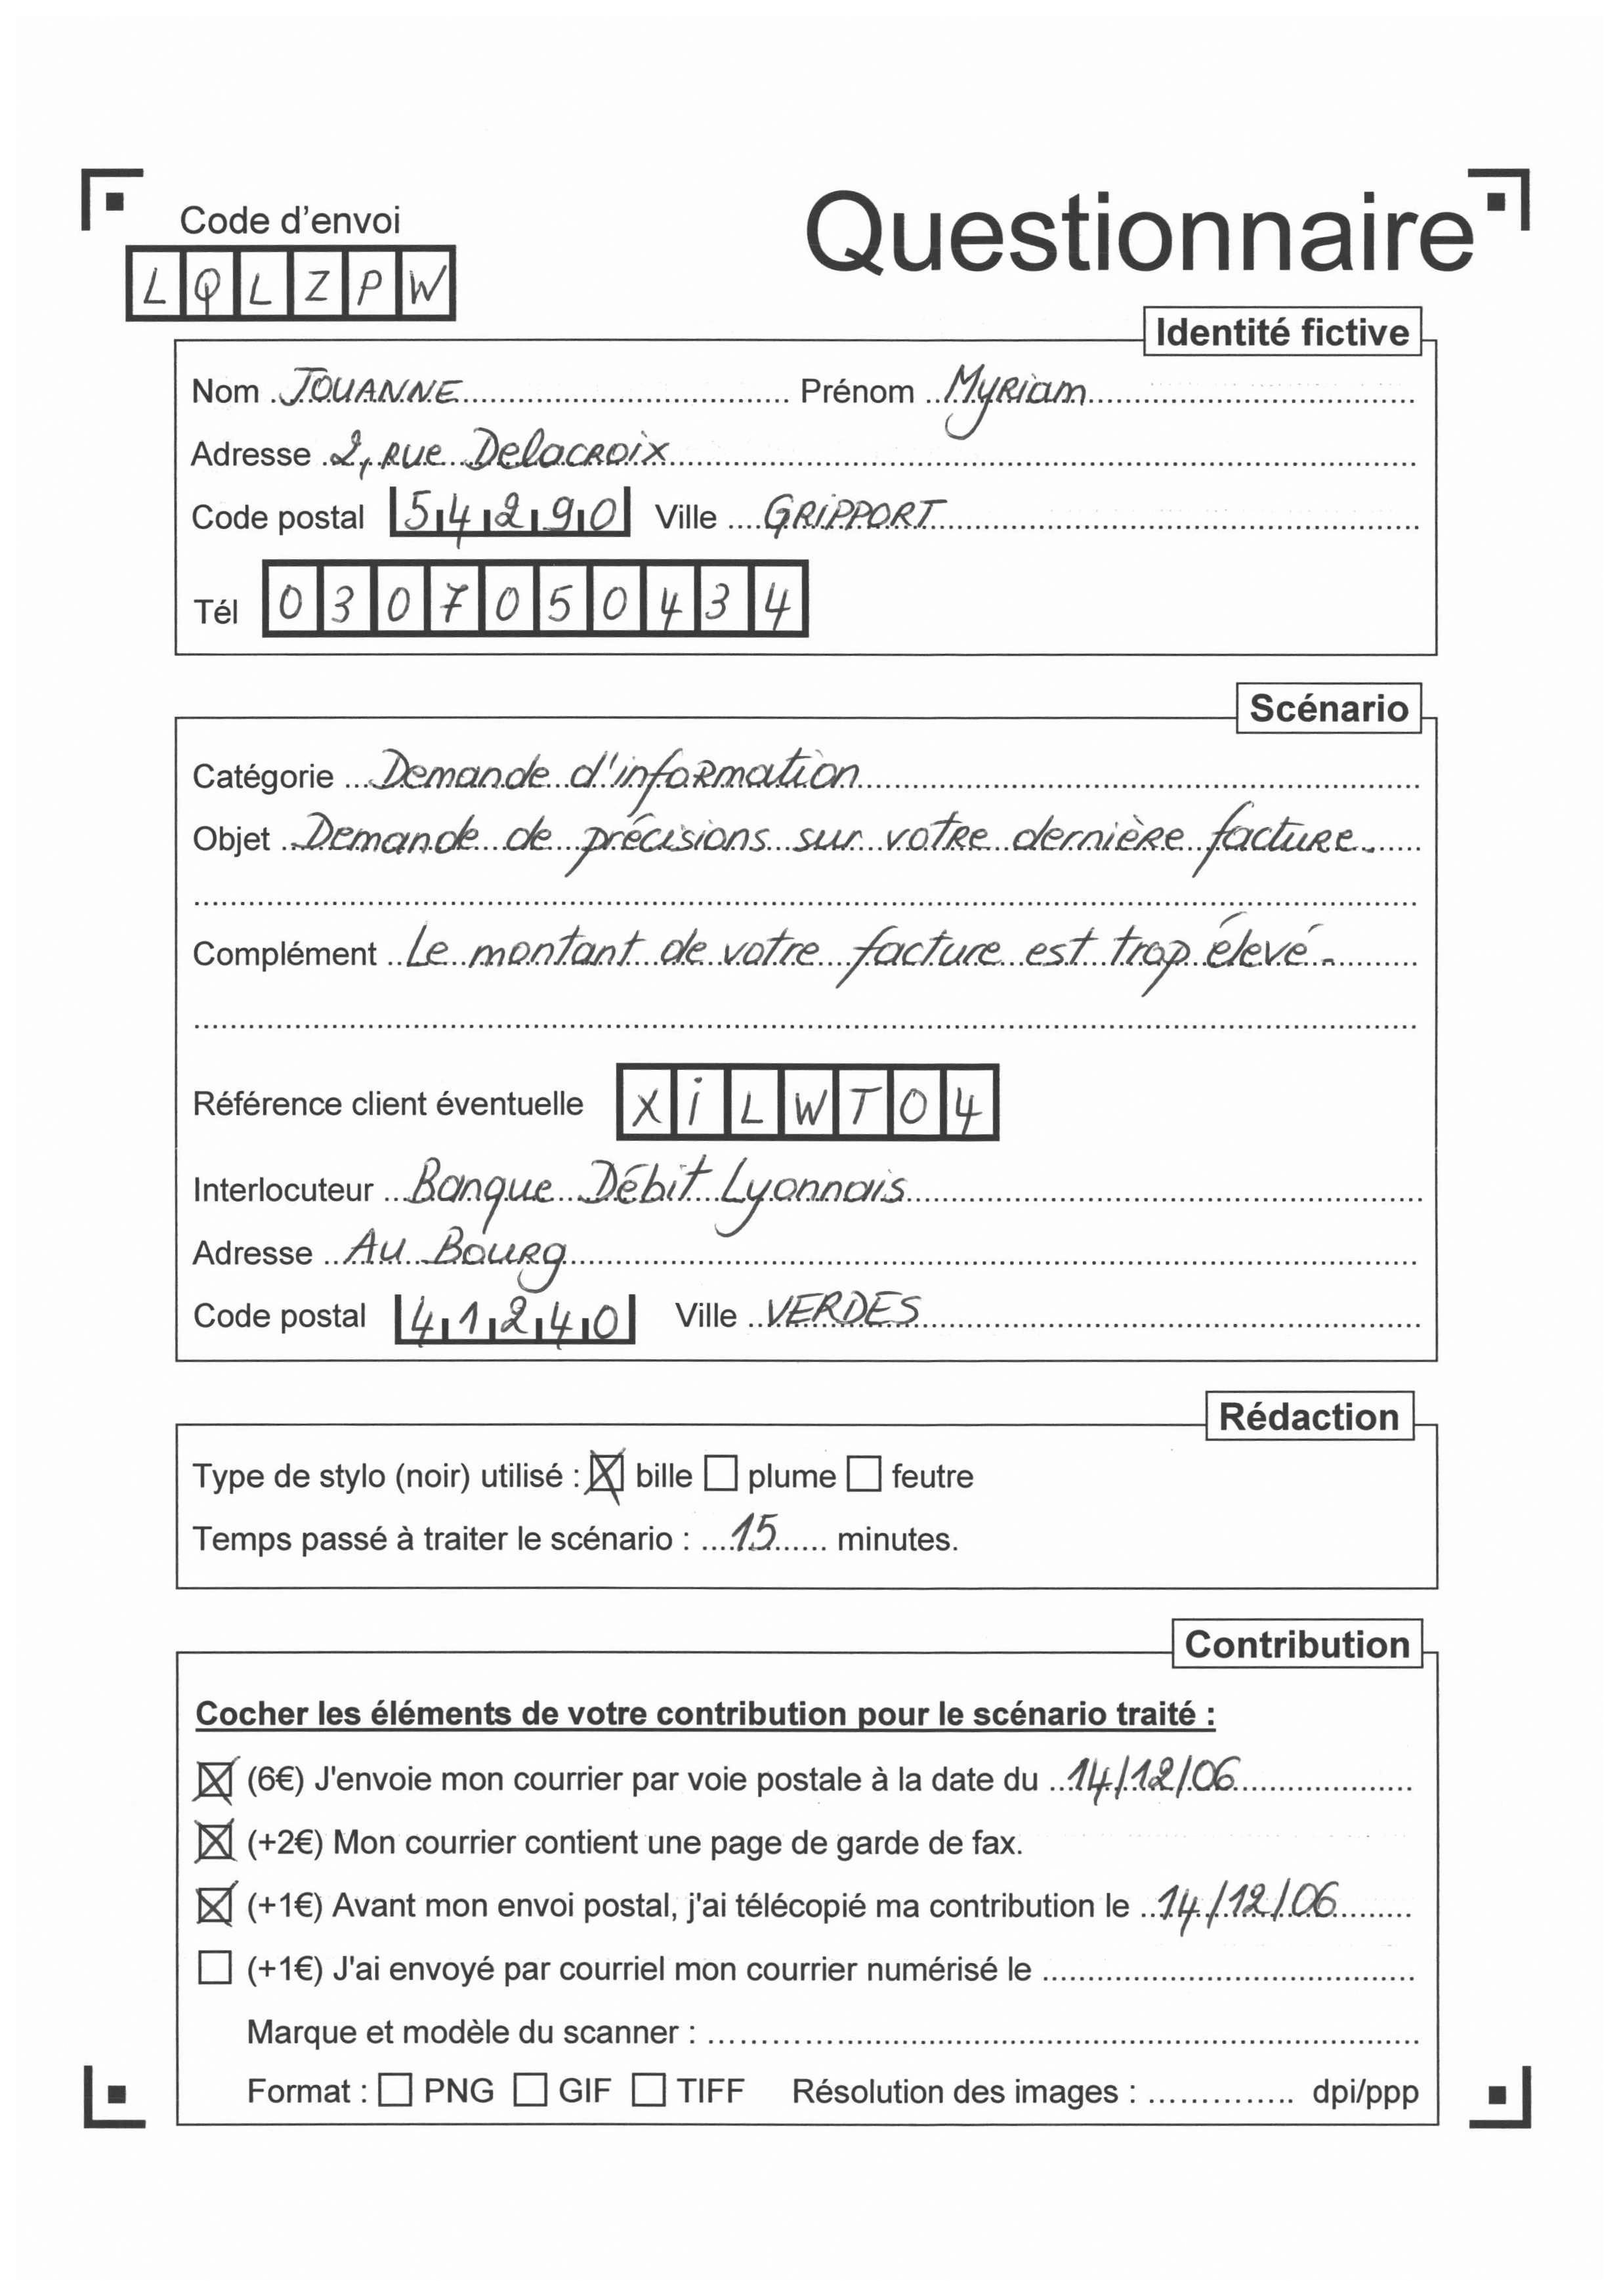 Code d'envoi
LQLZPW
Questionnaire
Identité fictive
Nom JOUANNE Prénom Myriam
Adresse 2, rue Delacroix
Code postal 54290 Ville GRIPPORT
Tél 0307050434
Scénario
Catégorie Demande d'information
Objet Demande de précisions sur votre dernière facture.
Complément Le montant de votre facture est trop élevé.
Référence client éventuelle XiLWT04
Interlocuteur Banque Débit Lyonnais
Adresse Au Bourg
Code postal 41240 Ville VERDES
Rédaction
Type de stylo (noir) utilisé : ☒ bille ☐ plume ☐ feutre
Temps passé à traiter le scénario : 15 minutes.
Contribution
Cocher les éléments de votre contribution pour le scénario traité :
☒ (6€) J'envoie mon courrier par voie postale à la date du 14/12/06
☒ (+2€) Mon courrier contient une page de garde de fax.
☒ (+1€) Avant mon envoi postal, j'ai télécopié ma contribution le 14/12/06
☐ (+1€) J'ai envoyé par courriel mon courrier numérisé le
Marque et modèle du scanner :
Format : ☐ PNG ☐ GIF ☐ TIFF Résolution des images : dpi/ppp